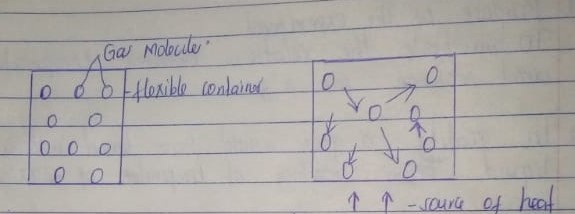 Gas Molecule.
flexible container
source of heat